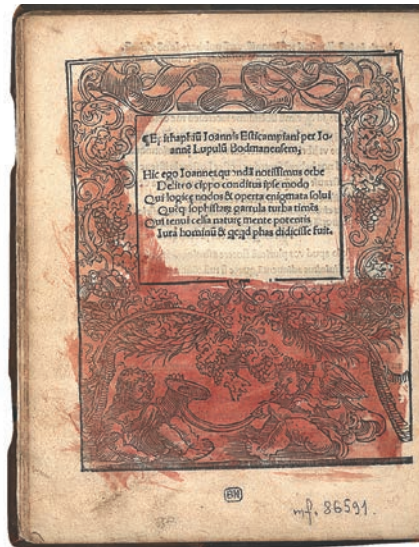 ¶Epithaphiū Ioannis Esticampiani per Io-
annē Lupulū Bodmanensem,
Hic ego Ioannes quondā notissimus orbe
Deliteo cippo conditus ipse modo
Qui logicę nodos & operta enigmata solui
Quęq sophistarę garrula turba timēt
Qui tenui celsa naturę mente potentis
Iura hominū & qcqd phas didicisse fuit.
BN
mf. 86591.